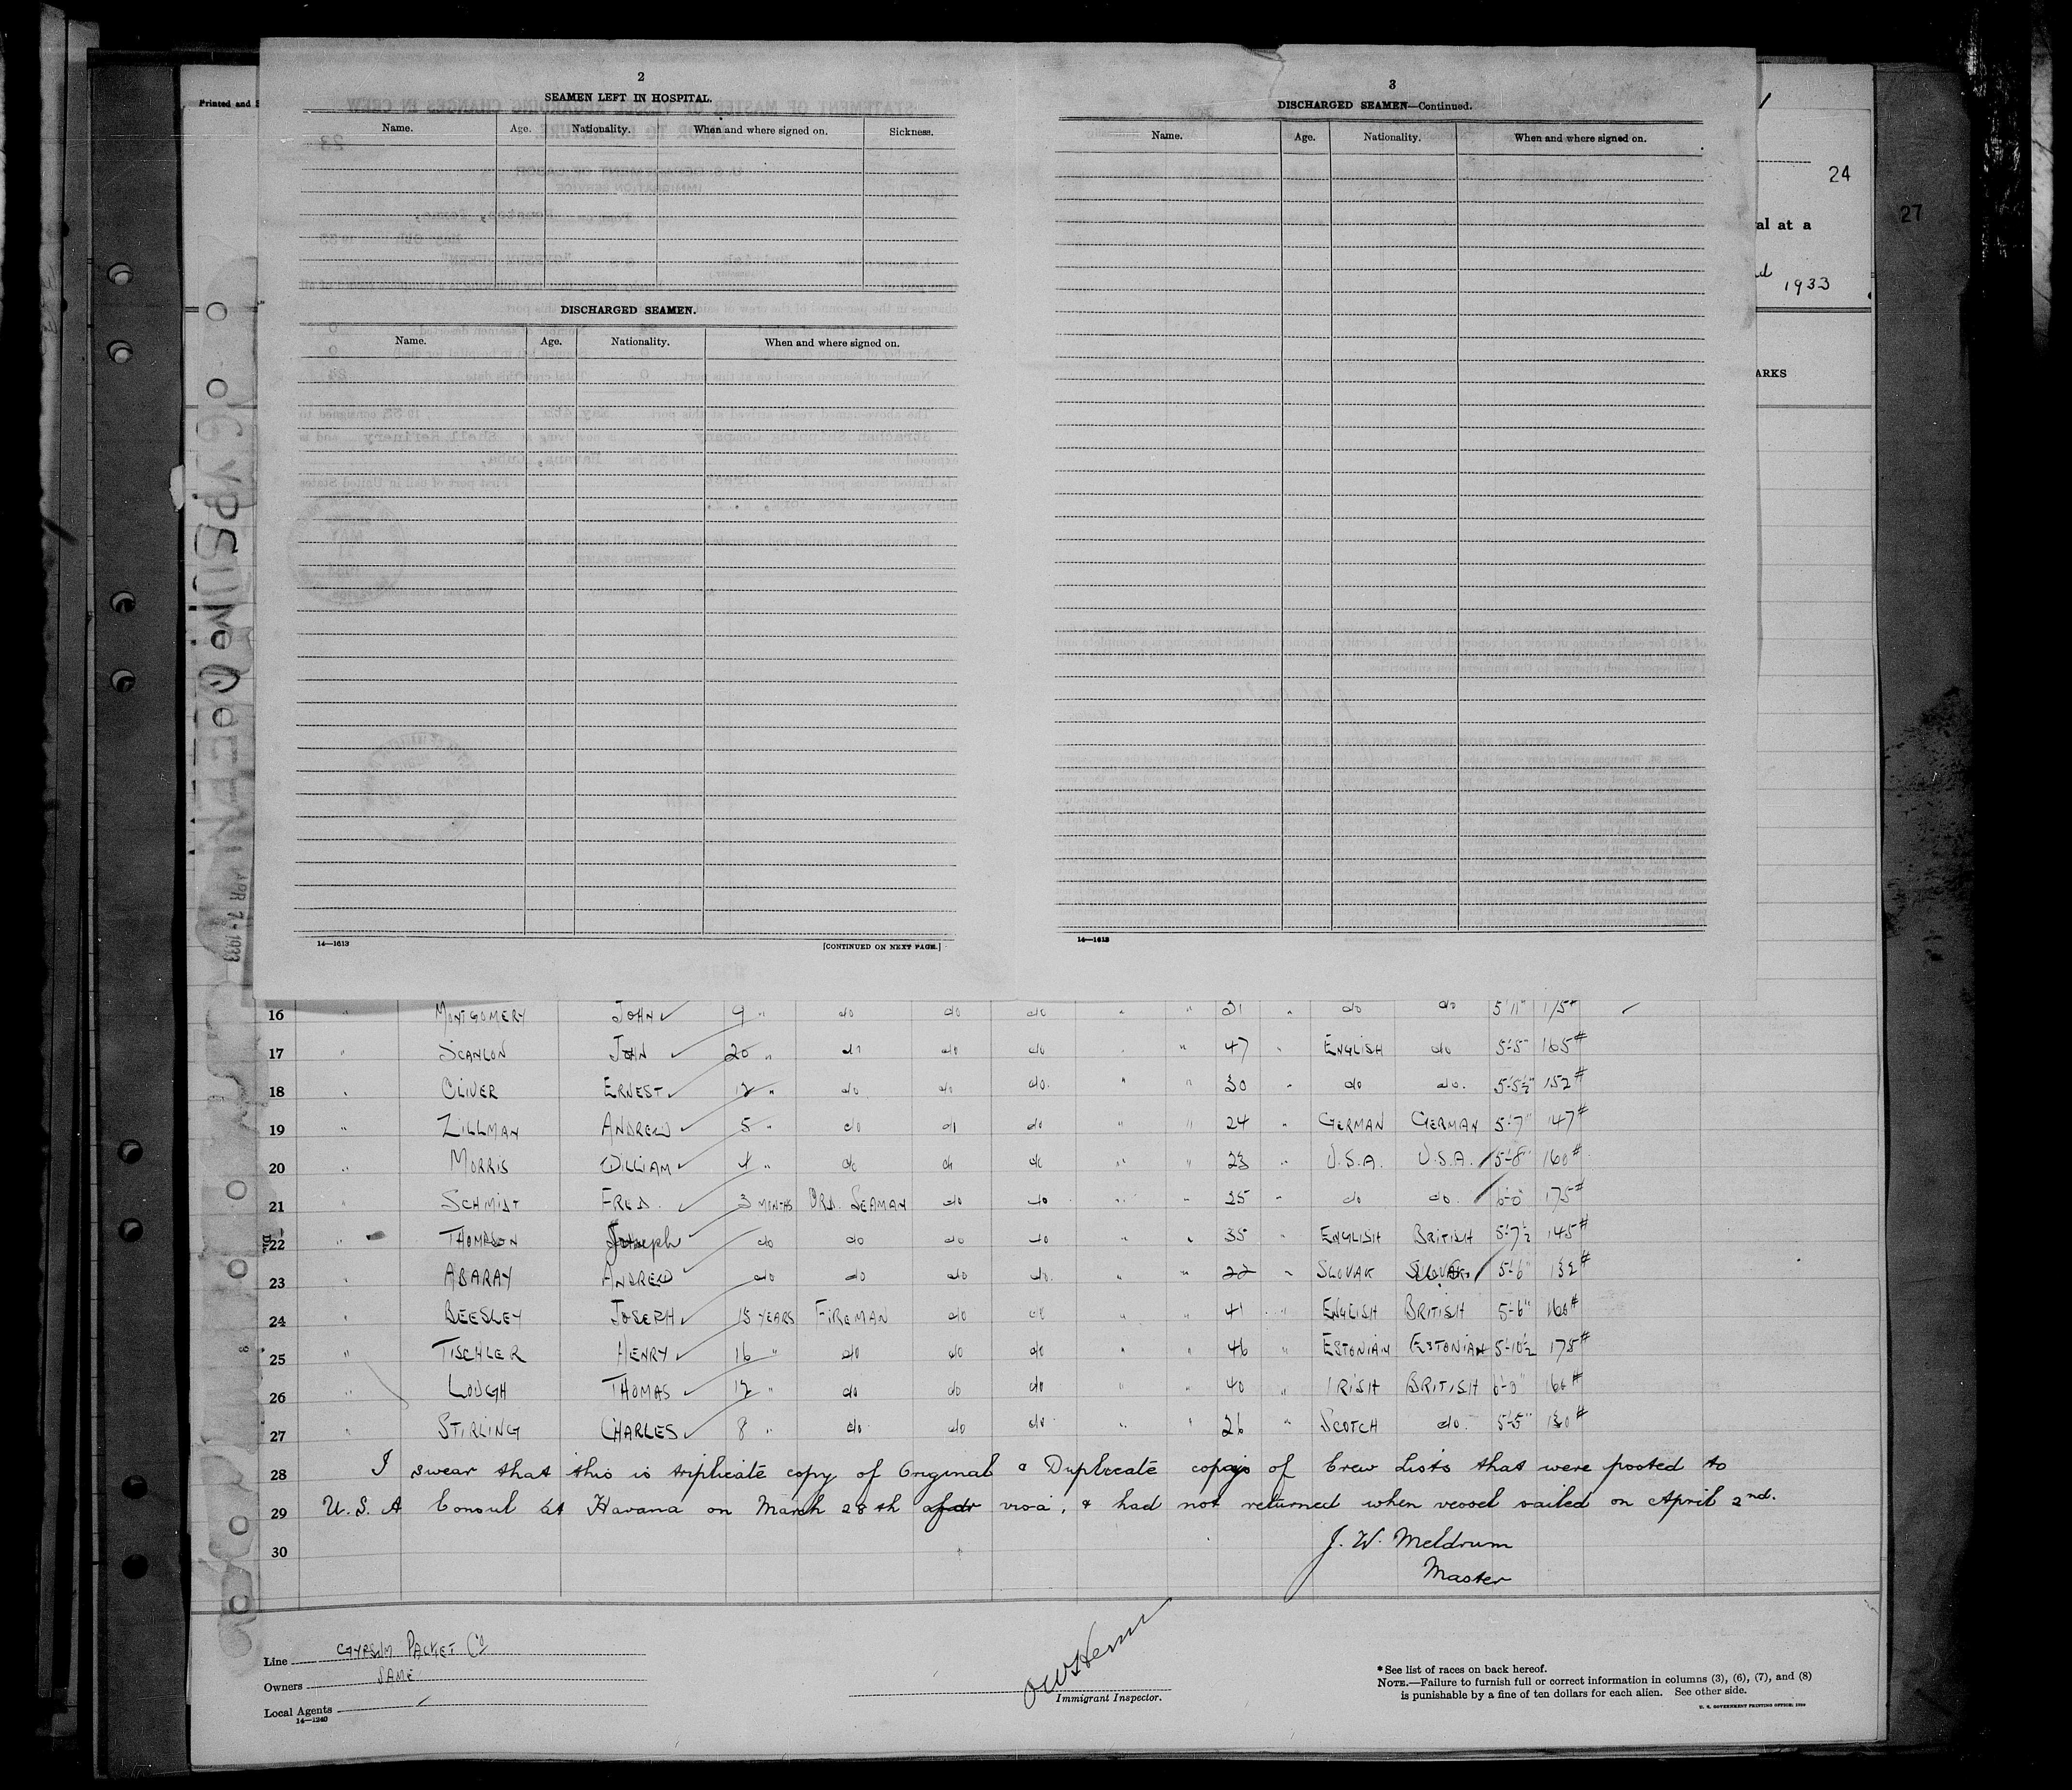 Printed and
2
SEAMEN LEFT IN HOSPITAL.
Name. Age. Nationality. When and where signed on. Sickness.
DISCHARGED SEAMEN.
Name. Age. Nationality. When and where signed on.
14—1613 [CONTINUED ON NEXT PAGE.]
3
DISCHARGED SEAMEN—Continued.
Name. Age. Nationality. When and where signed on.
14—1613
24
27
al at a
1933
ARKS
GYPSUM QUEEN
APR 7 - 1933
16 " MONTGOMERY JOHN ✓ 9 " do do do " " 21 " do do 5'11" 175#
17 " SCANLON JOHN ✓ 20 " do do do " " 47 " ENGLISH do 5-5" 165#
18 " OLIVER ERNEST ✓ 12 " do do do. " " 30 " do do. 5-5½" 152#
19 " ZILLMAN ANDREW ✓ 5 " do do do " " 24 " GERMAN GERMAN 5-7" 147#
20 " MORRIS WILLIAM ✓ 4 " do do do " " 23 " U.S.A. U.S.A. 5-8" 160#
21 " SCHMIDT FRED. ✓ 3 MONTHS ORD. SEAMAN do do " " 25 " do do. 6-0" 175#
22 " THOMPSON Joseph do do do do " " 35 " ENGLISH BRITISH 5-7½ 145#
23 " ABARAY ANDREW do do do do. " " 22 " SLOVAK 5-6" 132#
24 " BEESLEY JOSEPH ✓ 15 YEARS FIREMAN do do " " 41 " ENGLISH BRITISH 5-6" 160#
25 " TISCHLER HENRY ✓ 16 " do do do " " 46 " ESTONIAN ESTONIAN 5-10½ 175#
26 " LOUGH THOMAS ✓ 12 " do do do " " 40 " IRISH BRITISH 6-0" 166#
27 " STIRLING CHARLES ✓ 8 " do do do " " 26 " SCOTCH do. 5-5" 130#
28 I swear that this is triplicate copy of Original & Duplicate copys of Crew Lists that were posted to
29 U.S.A Consul at Havana on March 28th visa, & had not returned when vessel sailed on April 2nd.
30 J. W. Meldrum
Master
Line GYPSUM PACKET Co
Owners SAME
Local Agents
14—1240
Immigrant Inspector.
* See list of races on back hereof.
NOTE.—Failure to furnish full or correct information in columns (3), (6), (7), and (8)
is punishable by a fine of ten dollars for each alien. See other side.
U. S. GOVERNMENT PRINTING OFFICE: 1930